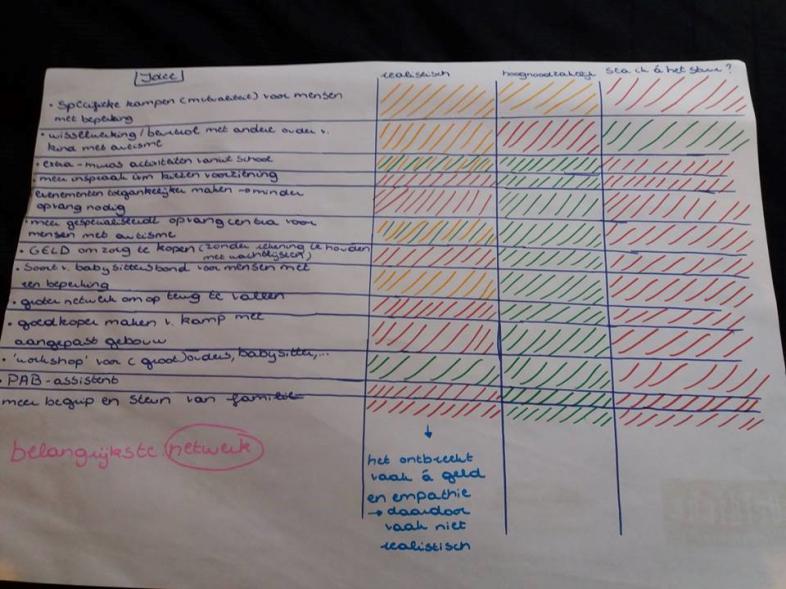 Idee
realistisch
hoognoodzakelijk
sta ik á het stuur?
• Specifieke kampen (mutualiteit) voor mensen
met beperking
• wisselwerking / beurtrol met andere ouder v.
kind met autisme
• extra-muros activiteiten vanuit school
• meer inspraak ivm kiezen voorziening
evenementen toegankelijker maken → minder
opvang nodig
• meer gespecialiseerde opvangcentra voor
mensen met autisme
• GELD om zorg te kopen (zonder rekening te houden
met wachtlijsten)
• Soort v. babysittersbond voor mensen met
een beperking
• groter netwerk om op terug te vallen
• goedkoper maken v. kamp met
aangepast gebouw
• 'workshop' voor (groot)ouders, babysitter,...
• PAB-assistent
meer begrip en steun van familie
belangrijkste netwerk
het ontbreekt
vaak á geld
en empathie
→ daardoor
vaak niet
realistisch